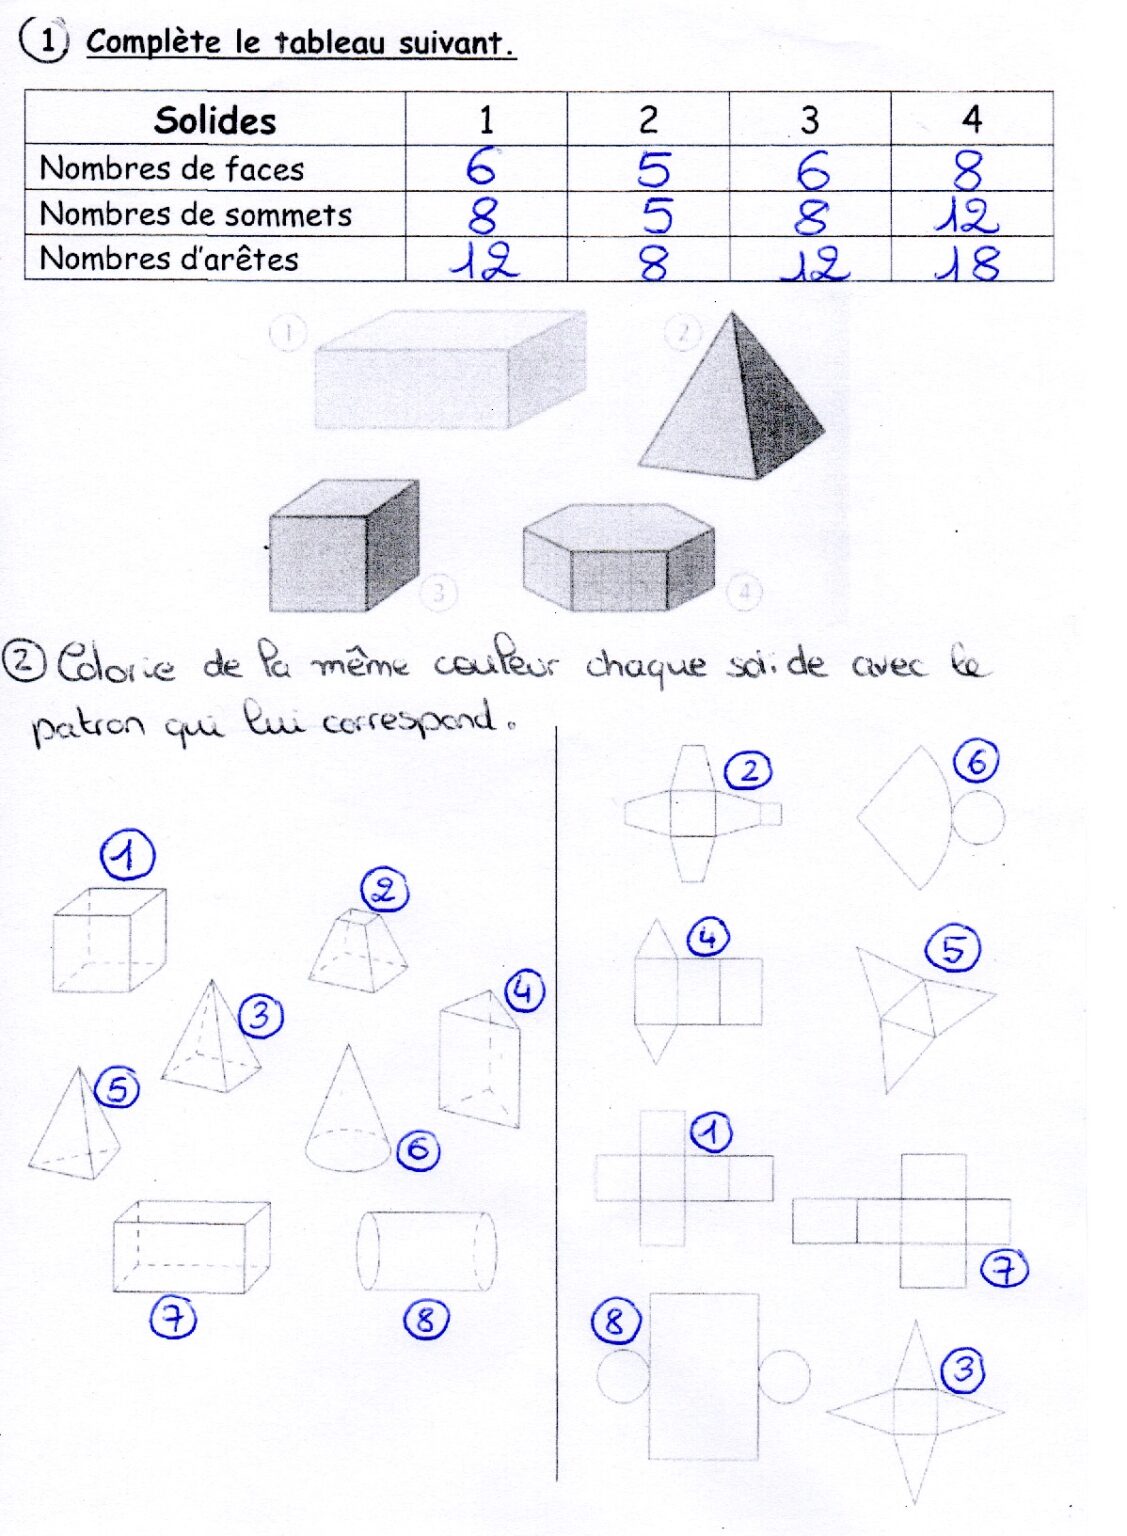 1 Complète le tableau suivant.
Solides 1 2 3 4
Nombres de faces 6 5 6 8
Nombres de sommets 8 5 8 12
Nombres d'arêtes 12 8 12 18
1 2
3 4
2 Colorie de la même couleur chaque solide avec le
patron qui lui correspond.
2 6
1
2
4 5
4
3
5
6
1
7
7 8
8
3